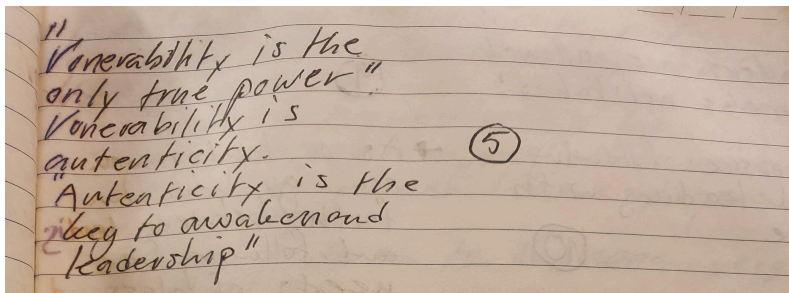 "
Vonerability is the
only true power"
Vonerability is
autenticity.
5
"Autenticity is the
key to awakenond
leadership"